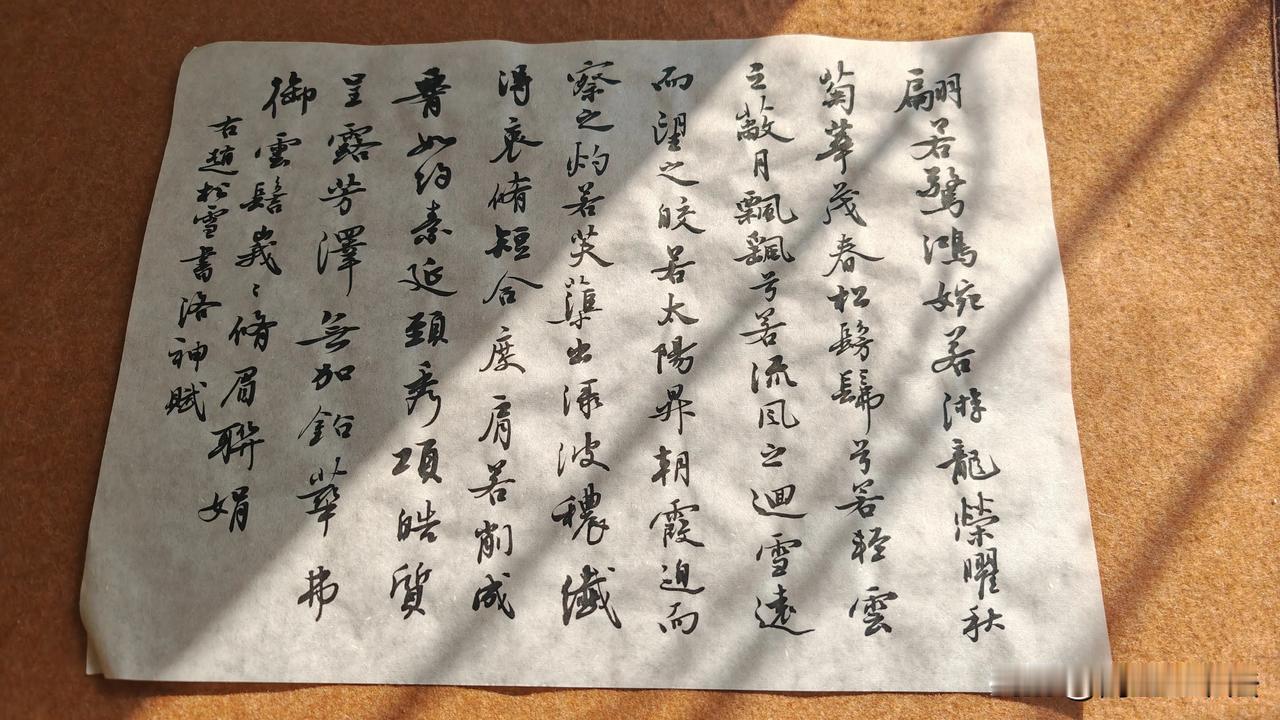 翩若驚鴻婉若游龍榮曜秋
菊華茂春松髣髴兮若輕雲
之蔽月飄颻兮若流風之迴雪遠
而望之皎若太陽昇朝霞迫而
察之灼若芙蕖出渌波穠纖
得衷脩短合度肩若削成
署如約素延頸秀項皓質
呈露芳澤無加鉛華弗
御雲髻峩〻脩眉聯娟
右趙松雪書洛神賦